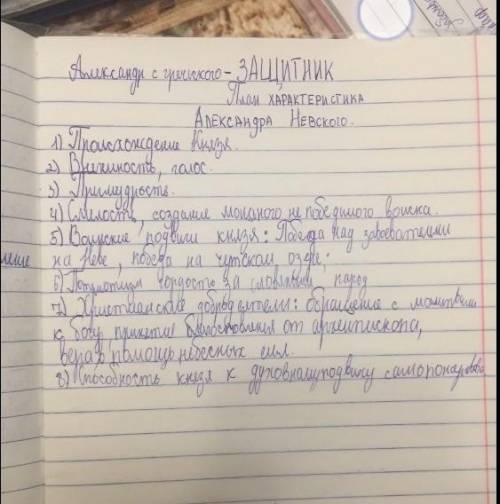 Александр с греческого - ЗАЩИТНИК
План характеристика
Александра Невского.
1) Происхождение Князя.
2) Внешность, голос.
3) Премудрость.
4) Смелость, создание мощного непобедимого войска.
5) Воинские подвиги князя: Победа над завоевателями
на Неве, победа на чутском озере;
6) Патриотизм гордость за славянский народ
7) Христианские добродетели: обращение с молитвами
к богу, принятие благословления от архиепископа,
вера в помощь небесных сил.
8) Способность князя к духовному подвигу